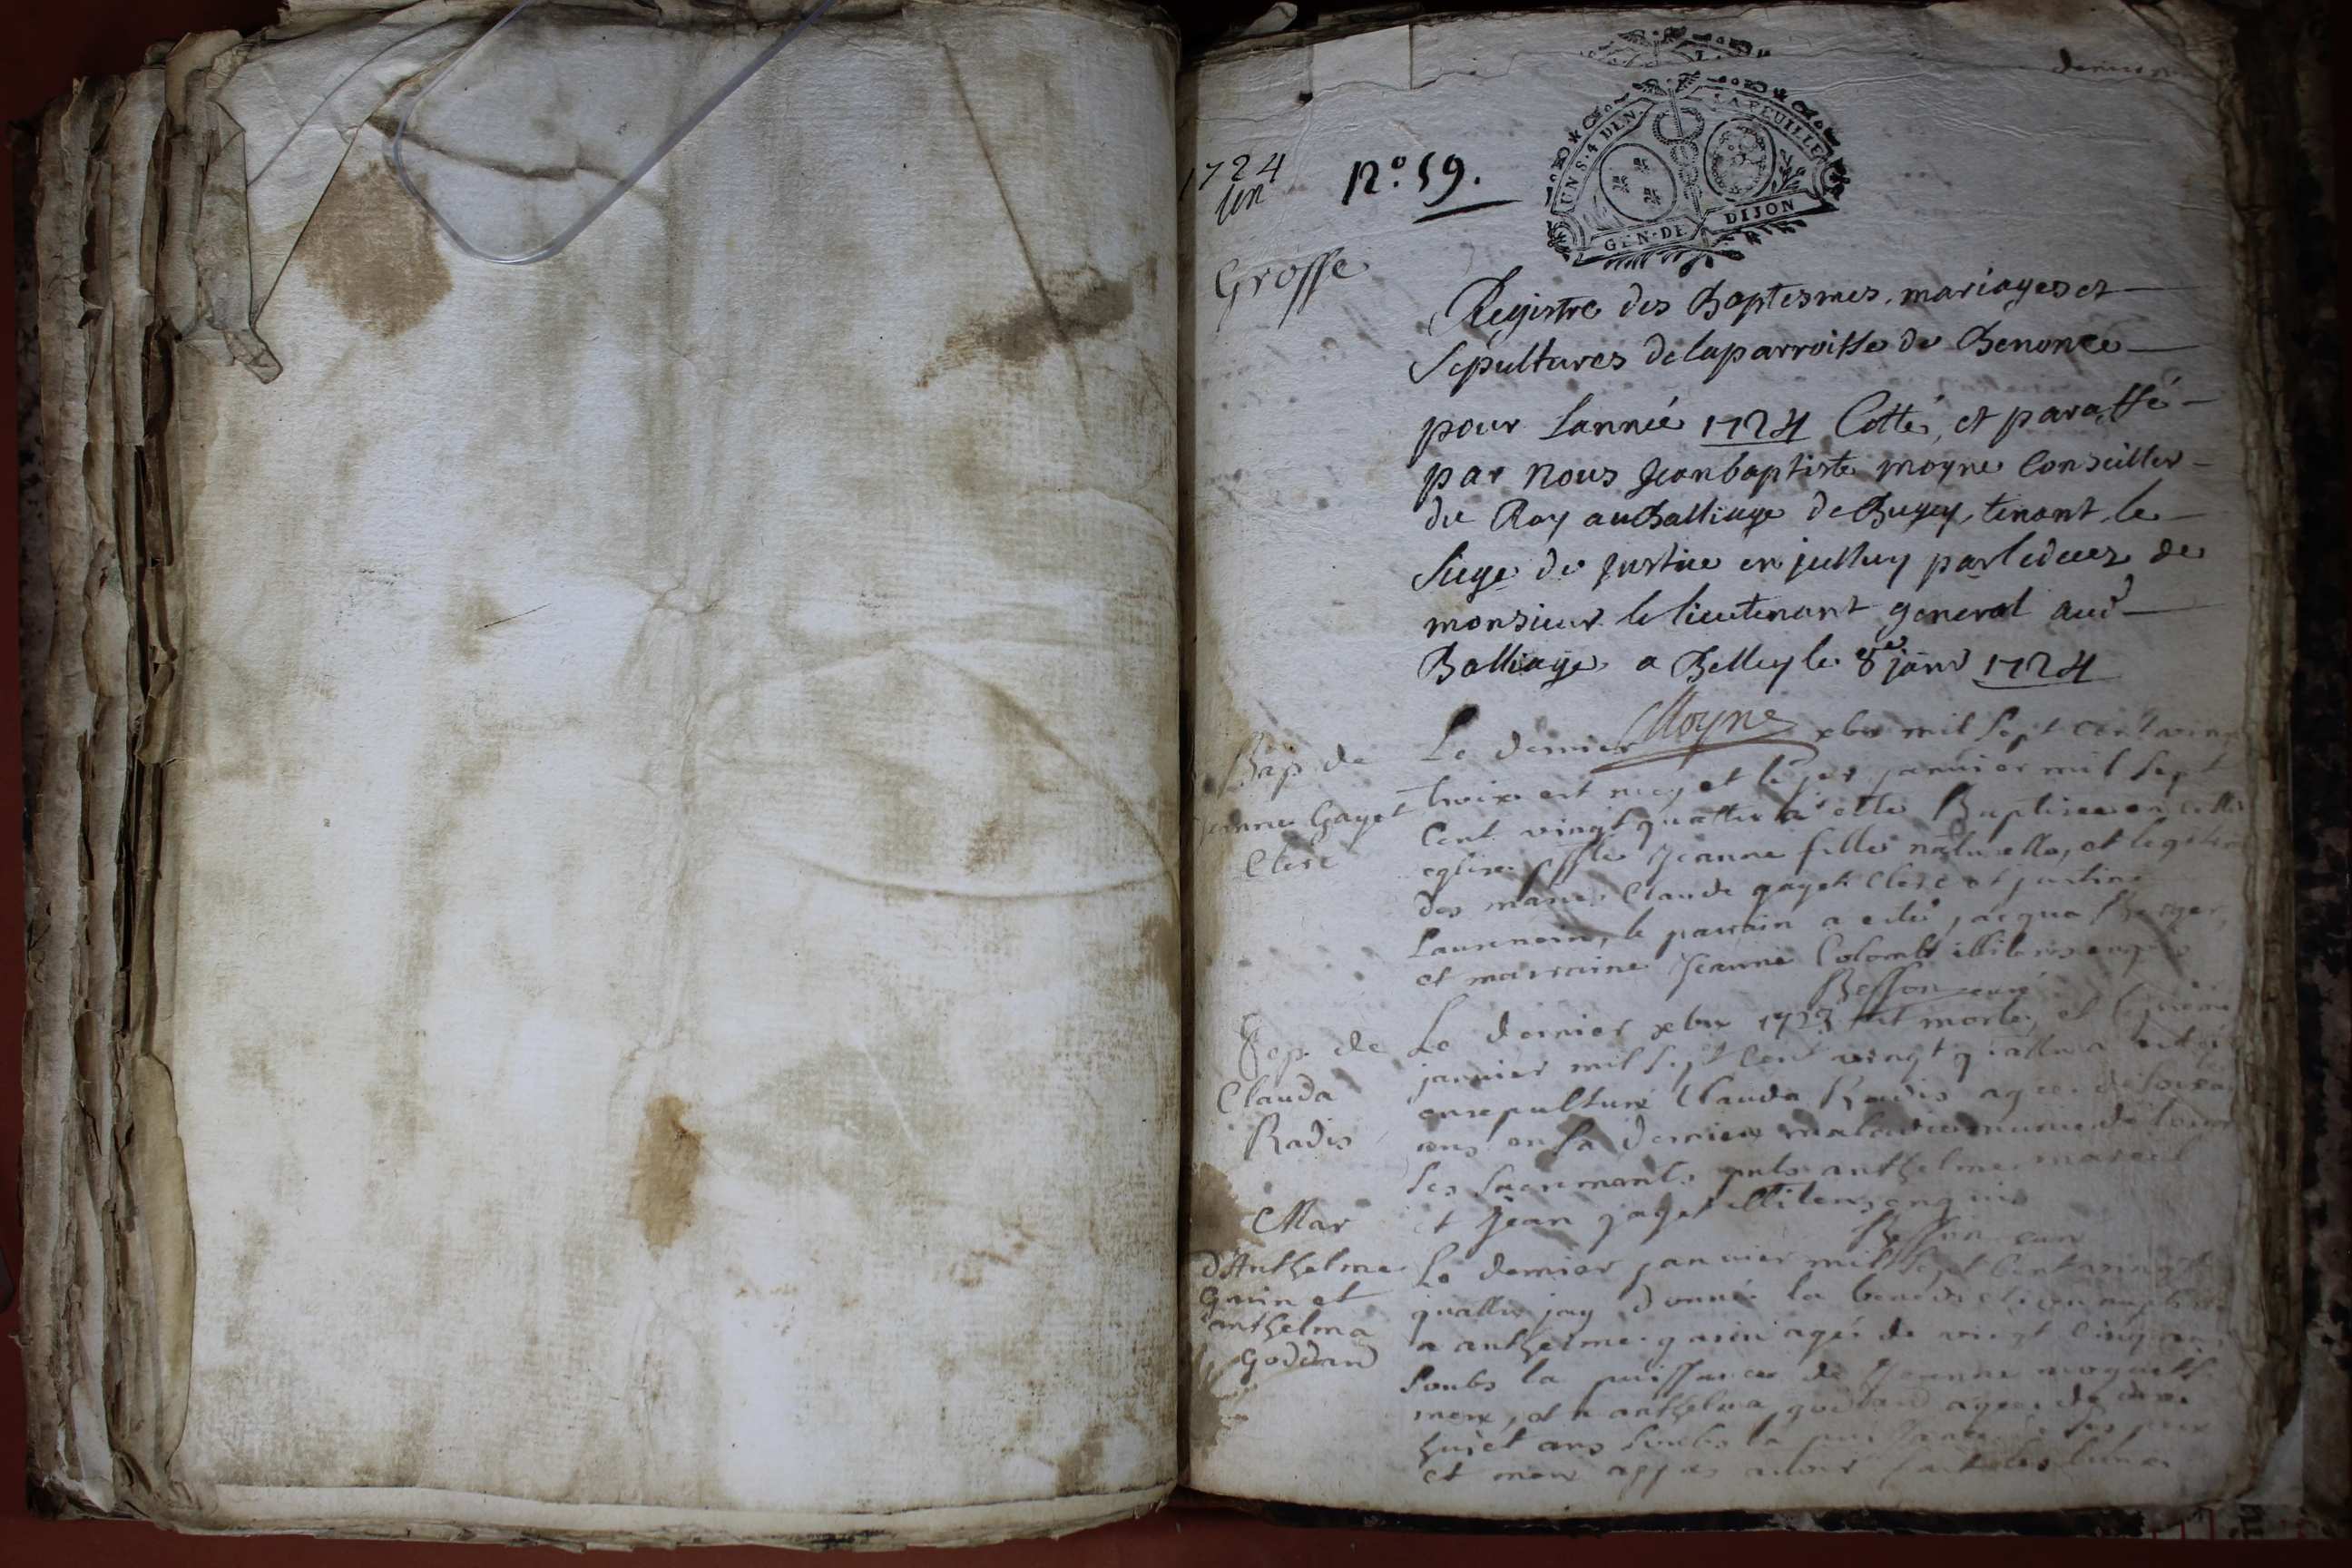 1724
un
N.º 59.
Grosse
UN S. 4 DEN. LA FEUILLE
GEN. DE DIJON
Registre des Baptesmes, mariages et
Sepultures de la parroisse de Benonce
pour Lannée 1724 Cotté, et paraffé
par Nous Jean baptiste moyne Conseiller
du Roy au Balliage de Bugey, tenant le
siege de justice en
monsieur le lieutenant general aud
Balliage a Belley le 8e janv 1724
Moyne
Bap de
Jeanne Gayet
Clerc
Le dernier xbre mil sept cent vingt
trois est née, et le per janvier mil sept
cent vingt quattre a esté Baptisee en cette
eglise Jeanne fille naturelle, et legitime
des maries Claude gayet Clerc et justine
le parrain a esté jacque Berger
et marraine Jeanne Colomb illiteres enquis
Besson curé
Sep. de
Clauda
Radis
Le dernier xbre 1723 est morte, et
janvier mil sept cent vingt quattre a esté
ensepulturé Clauda Radis agee de
ans en sa derniere maladie munie de tous
les sacrements pnts anthelme
et Jean gayet illiteres enquis
Besson curé
Mar
d'Anthelme
Guin et
anthelma
Goddard
Le dernier janvier mil sept cent vingt
quattre jay donné la benediction nuptiale
a anthelme agé de vingt cinq ans
soubs la puissance de Jeanne
mere, et a anthelma agee de
huict ans soubs la puissance de ses pere
et mere appres avoir